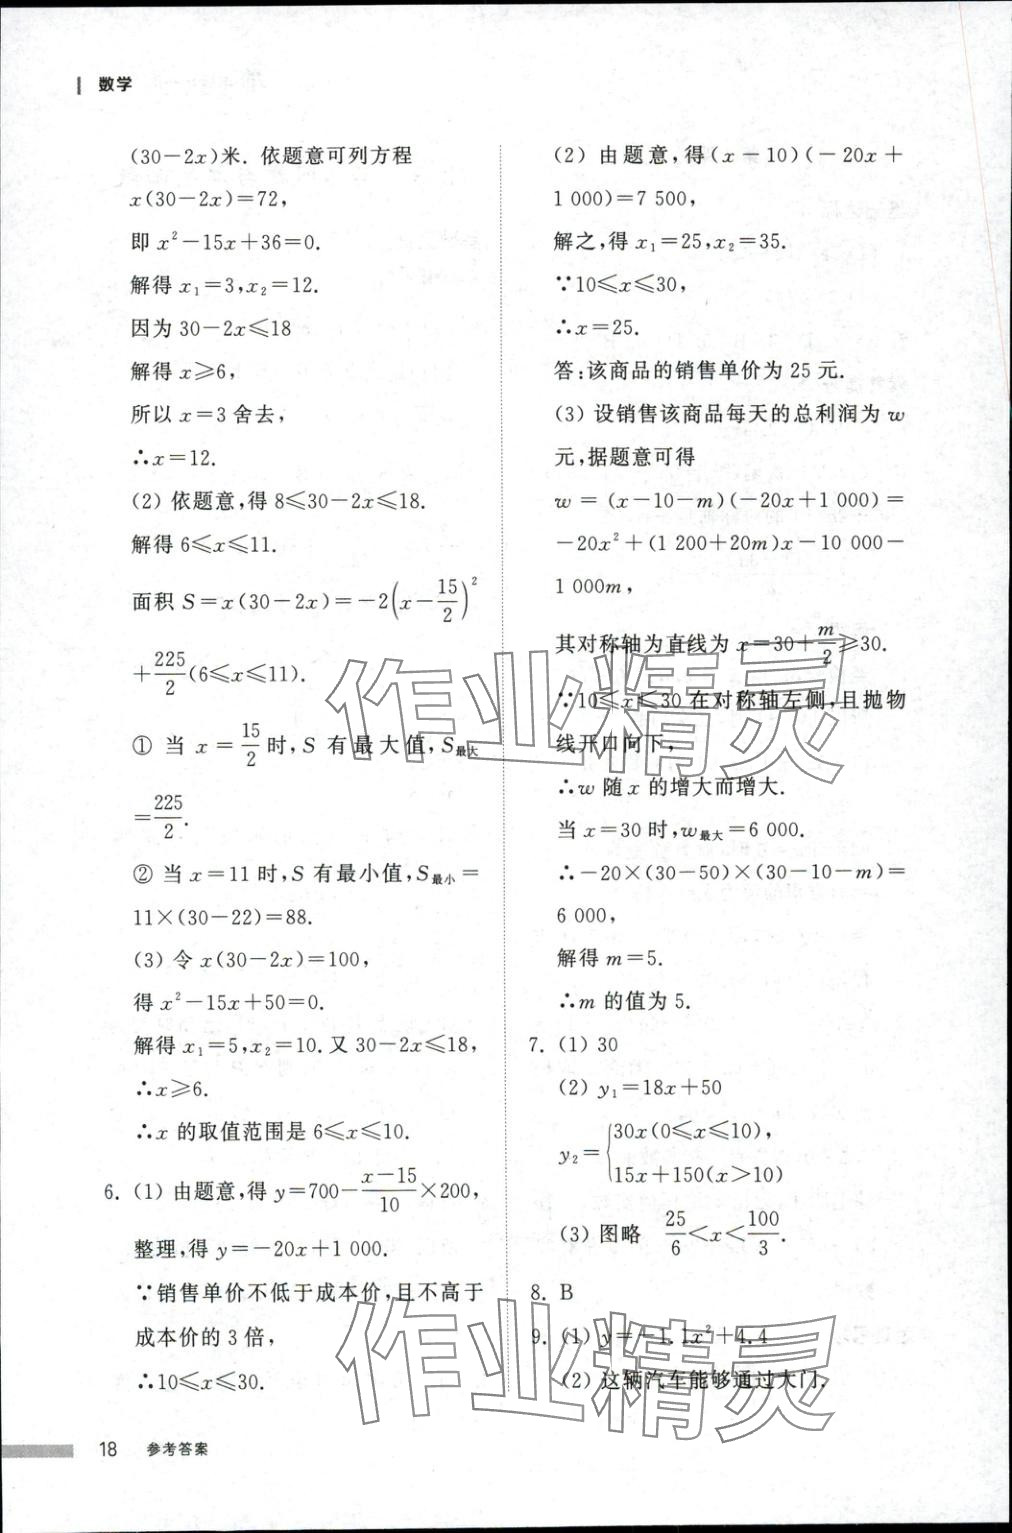 数学
(30－2x)米. 依题意可列方程
x(30－2x)＝72,
即 x²－15x＋36＝0.
解得 x₁＝3,x₂＝12.
因为 30－2x≤18
解得 x≥6,
所以 x＝3 舍去,
∴x＝12.
(2) 依题意,得 8≤30－2x≤18.
解得 6≤x≤11.
面积 S＝x(30－2x)＝－2(x－15/2)²
＋225/2(6≤x≤11).
① 当 x＝15/2时,S 有最大值,S最大
＝225/2.
② 当 x＝11 时,S 有最小值,S最小＝
11×(30－22)＝88.
(3) 令 x(30－2x)＝100,
得 x²－15x＋50＝0.
解得 x₁＝5,x₂＝10.又 30－2x≤18,
∴x≥6.
∴x 的取值范围是 6≤x≤10.
6. (1) 由题意,得 y＝700－(x－15)/10×200,
整理,得 y＝－20x＋1 000.
∵销售单价不低于成本价,且不高于
成本价的 3 倍,
∴10≤x≤30.
(2) 由题意,得(x－10)(－20x＋
1 000)＝7 500,
解之,得 x₁＝25,x₂＝35.
∵10≤x≤30,
∴x＝25.
答:该商品的销售单价为 25 元.
(3) 设销售该商品每天的总利润为 w
元,据题意可得
w＝(x－10－m)(－20x＋1 000)＝
－20x²＋(1 200＋20m)x－10 000－
1 000m,
其对称轴为直线为 x＝30＋m/2≥30.
∵10≤x≤30 在对称轴左侧,且抛物
线开口向下,
∴w 随 x 的增大而增大.
当 x＝30 时,w最大＝6 000.
∴－20×(30－50)×(30－10－m)＝
6 000,
解得 m＝5.
∴m 的值为 5.
7. (1) 30
(2) y₁＝18x＋50
y₂＝{30x(0≤x≤10),
15x＋150(x＞10)
(3) 图略 25/6＜x＜100/3.
8. B
9. (1) y＝－1.1x²＋4.4
(2) 这辆汽车能够通过大门.
18 参考答案
作业精灵
作业精灵